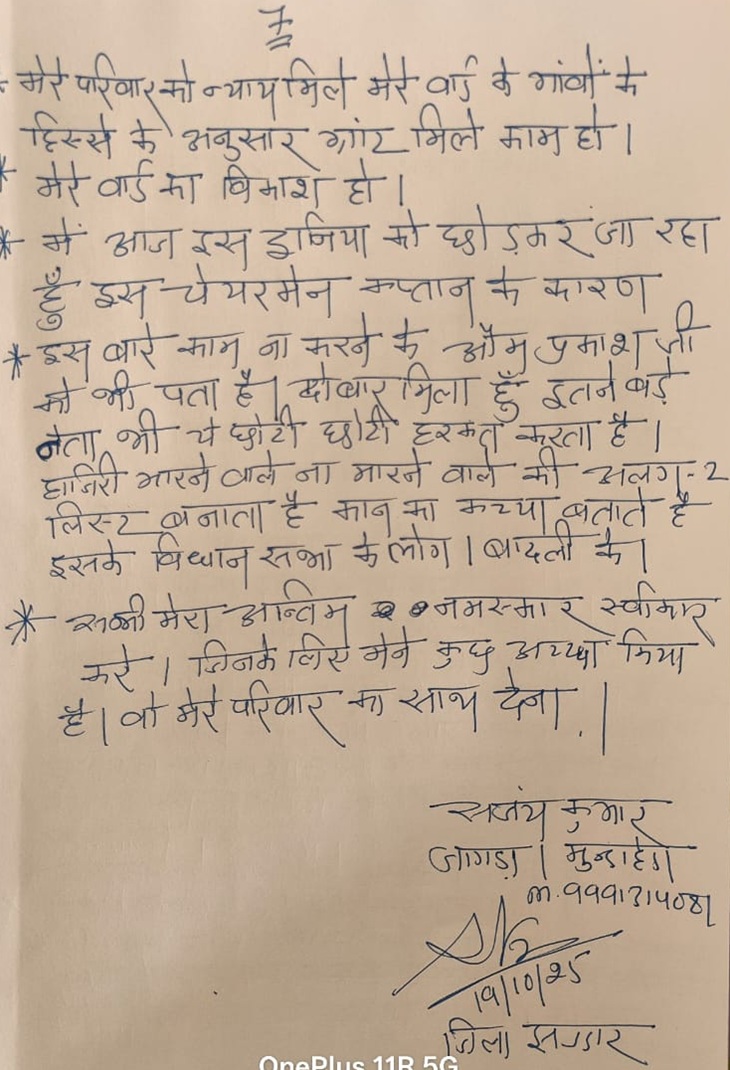 7
मेरे परिवार को न्याय मिले मेरे वार्ड के गांवों के
हिस्से के अनुसार ग्रांट मिले काम हो।
* मेरे वार्ड का विकाश हो।
* में आज इस दुनिया को छोड़कर जा रहा
हुँ इस चेयरमेन कप्तान के कारण
* इस बारे काम ना करने के ओम प्रकाश जी
को भी पता है। दो बार मिला हुँ इतने बड़े
नेता भी ये छोटी छोटी हरकत करता है।
हाजिरी मारने वाले ना मारने वाले की अलग-2
लिस्ट बनाता है कान का कच्चा बताते है
इसके विधान सभा के लोग। बादली के।
* सभी मेरा अन्तिम नमस्कार स्वीकार
करे। जिनके लिए मेने कुछ अच्छा किया
है। वो मेरे परिवार का साथ देना।
संजय कुमार
जागड़ा। मुन्डाहेड़ा
m. 9991314081
19/10/25
जिला झज्जर
OnePlus 11R 5G